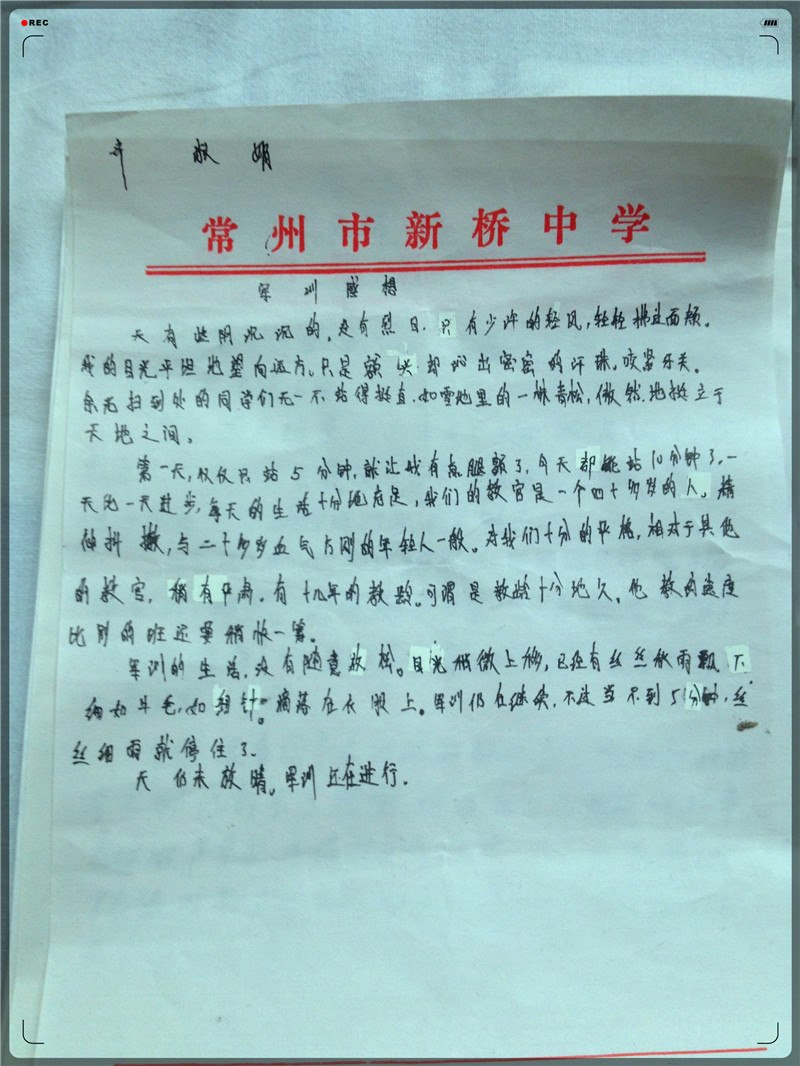 REC
常州市新桥中学
军训感想
天有些阴沉沉的,没有烈日,只有少许的轻风,轻轻拂过面颊。
我的目光平坦地望向远方,只是额头却沁出密密的汗珠。咬紧牙关。
余光扫到处的同学们无一不站得挺直,如雪地里的一株青松,傲然地挺立于
天地之间。
第一天,仅仅只站5分钟,就让我有点腿颤了,今天都能站10分钟了,一
天比一天进步,每天的生活十分地充足,我们的教官是一个四十多岁的人。精
神抖擞,与二十多岁血气方刚的年轻人一般。对我们十分的严格,相对于其他
的教官,稍有严肃。有十几年的教龄。可谓是教龄十分地久。他教的速度
比别的班还要稍快一筹。
军训的生活,没有随意放松。目光稍微上移,已经有丝丝秋雨飘下
细如牛毛,如细针。滴落在衣服上。军训仍在继续,不过当不到5分钟,丝
丝细雨就停住了。
天仍未放晴。军训还在进行。